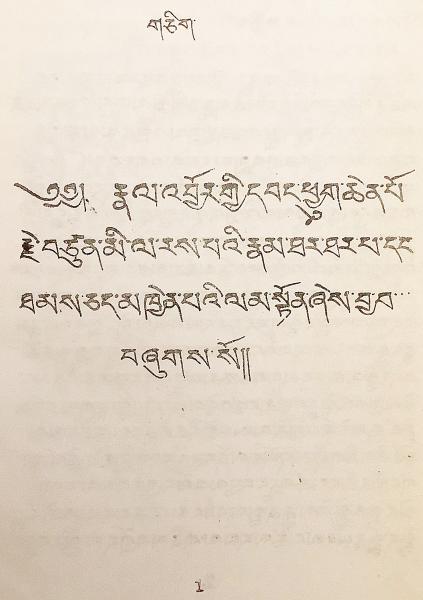 གཅིག
༄༅། །རྣལ་འབྱོར་གྱི་དབང་ཕྱུག་ཆེན་པོ
རྗེ་བཙུན་མི་ལ་རས་པའི་རྣམ་ཐར་ཐར་པ་དང
ཐམས་ཅད་མཁྱེན་པའི་ལམ་སྟོན་ཞེས་བྱ་བ་...
བཞུགས་སོ༎
1